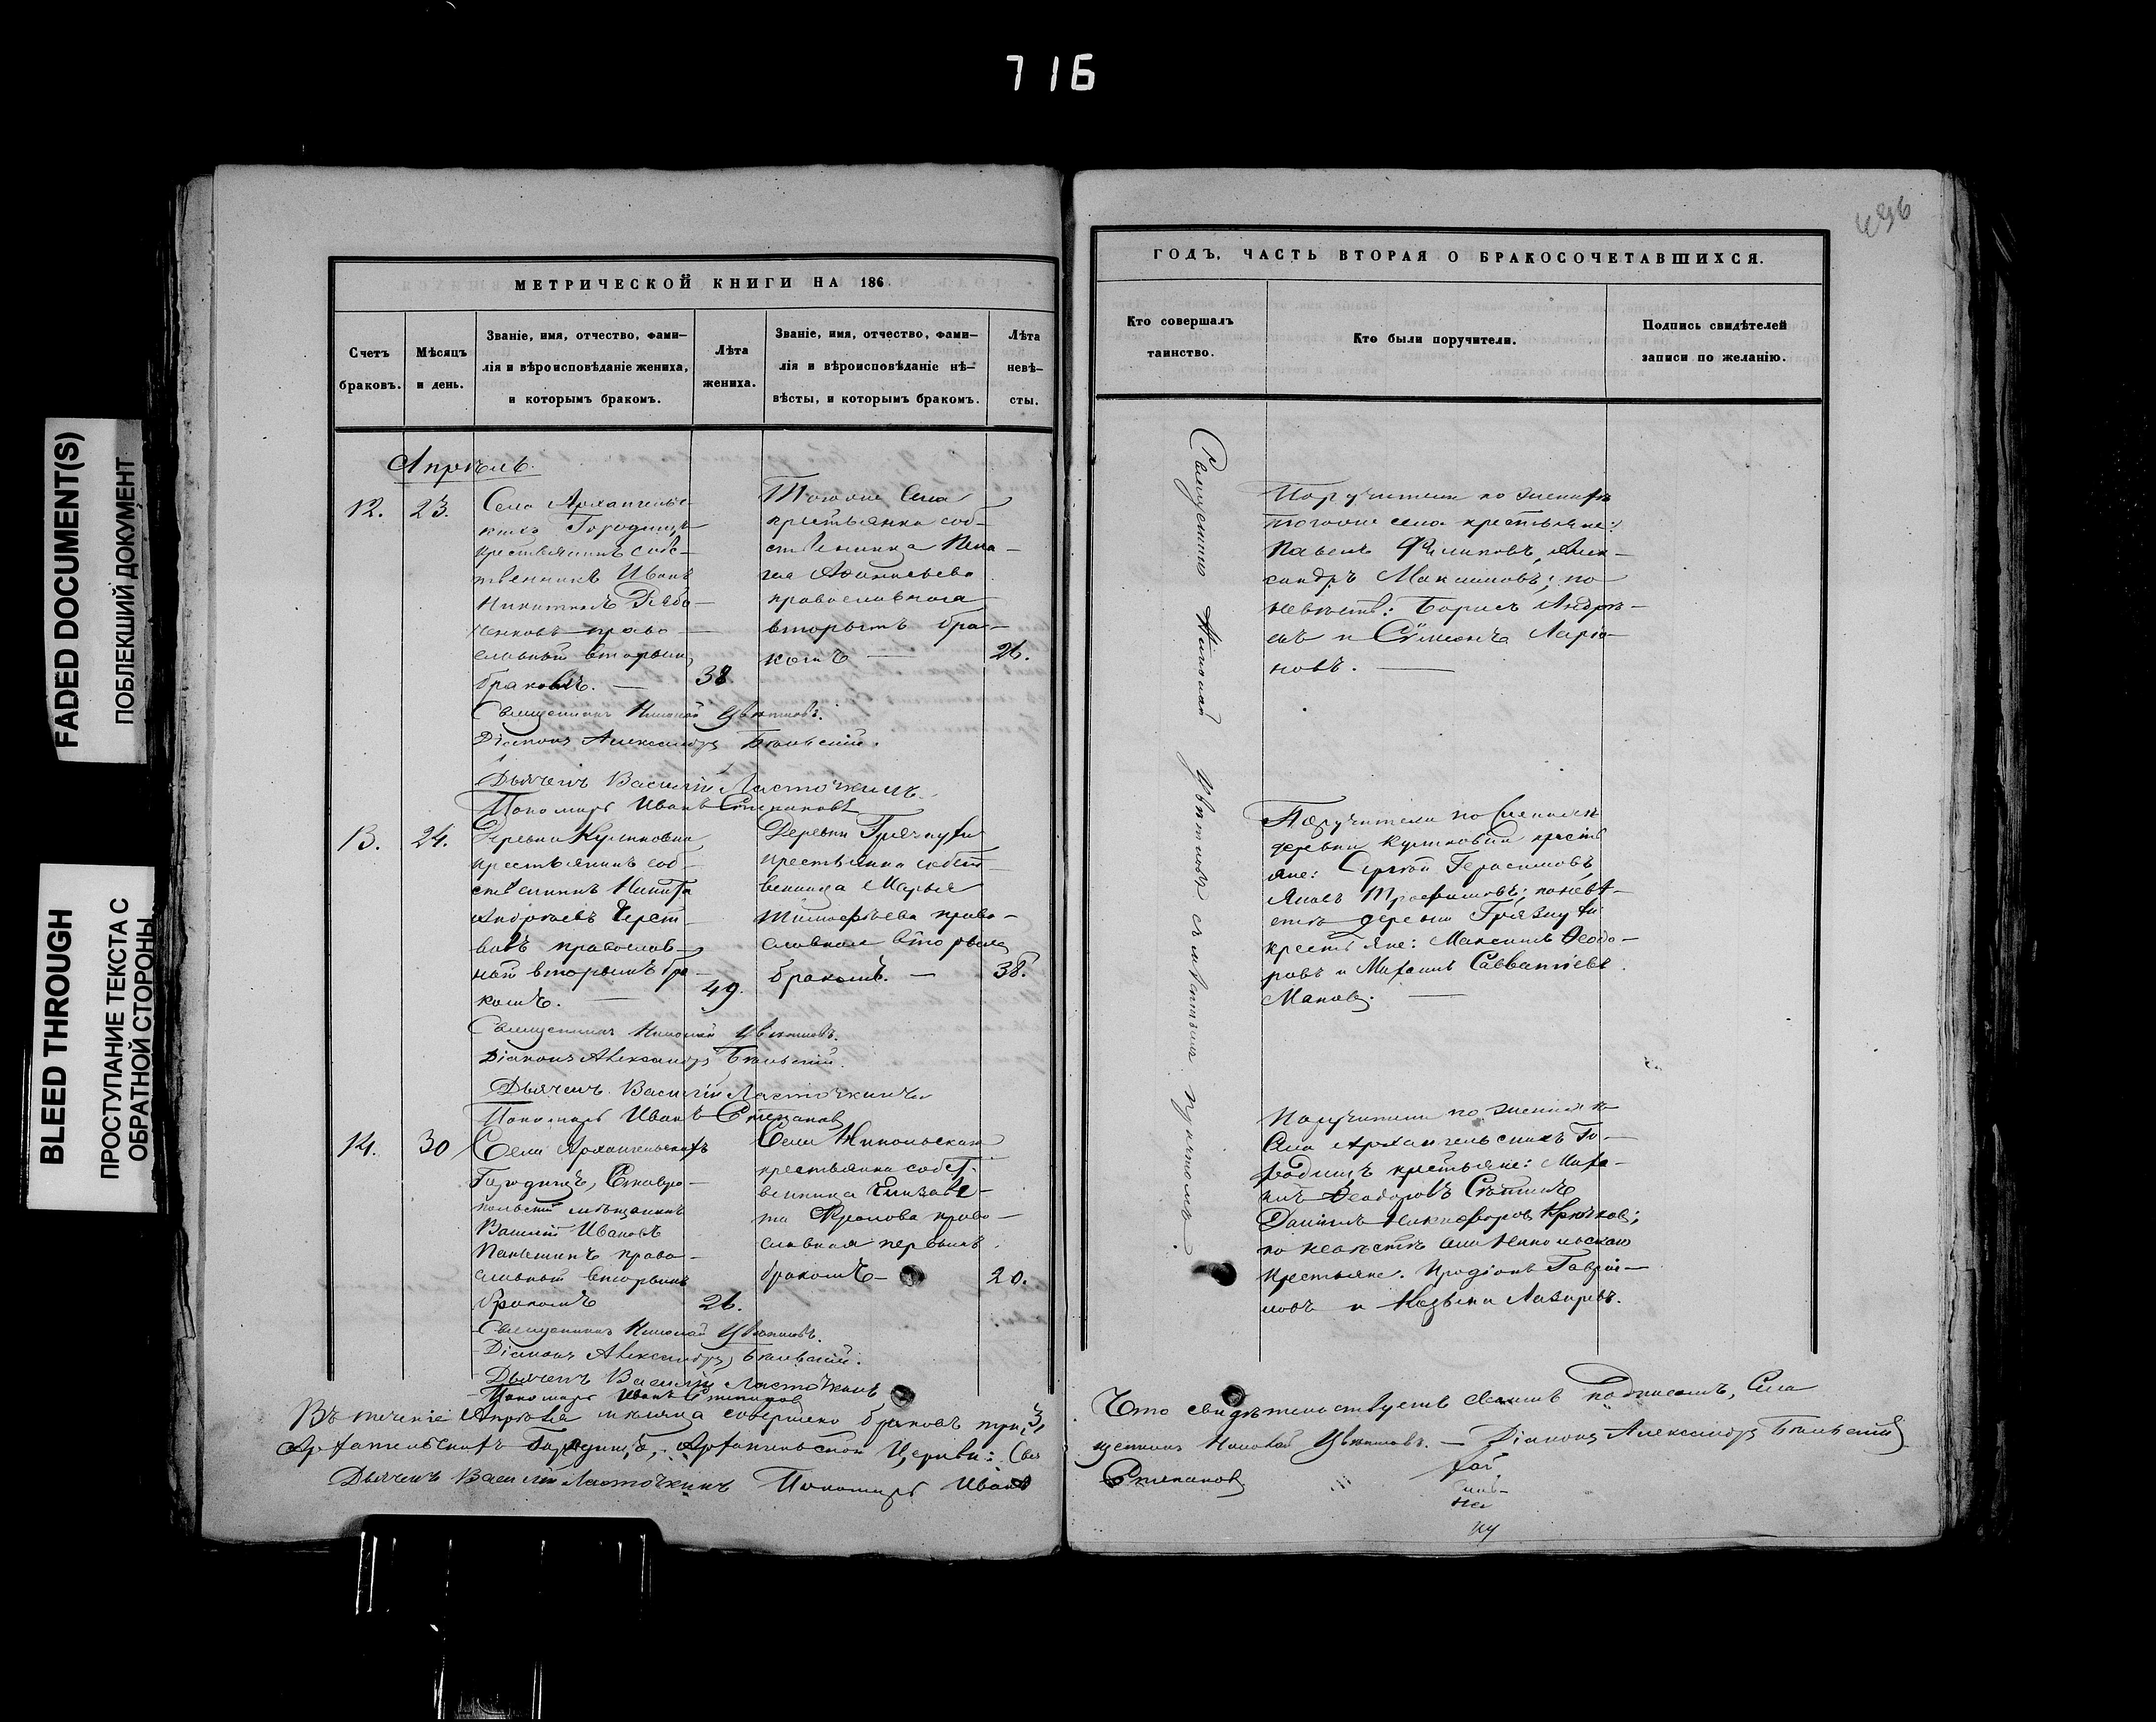 716
FADED DOCUMENT(S)
ПОБЛЕКШИЙ ДОКУМЕНТ
BLEED THROUGH
ПРОСТУПАНИЕ ТЕКСТА С
ОБРАТНОЙ СТОРОНЫ
МЕТРИЧЕСКОЙ КНИГИ НА 186
Счетъ
браковъ.
Мѣсяцъ
и день.
Званіе, имя, отчество, фами-
лія и вѣроисповѣданіе жениха,
и которымъ бракомъ.
Лѣта
жениха.
Званіе, имя, отчество, фами-
лія и вѣроисповѣданіе нѣ-
вѣсты, и которымъ бракомъ.
Лѣта
невѣ-
сты.
Апрѣль.
12. 23.
Села Архангельс-
кихъ Городищъ
крестьянинъ собс-
твенникъ Иванъ
Никитинъ
православ-
славный вторымъ
бракомъ. — 38
Тогоже Села
крестьянка соб-
ственница
православная
вторымъ бра-
комъ — 26.
Священникъ Николай Цвѣтковъ.
Діаконъ Александръ Бѣльскій.
Дьячекъ Василій Ласточкинъ.
Пономарь Иванъ Степановъ
13. 24.
Деревни Куликовки
крестьянинъ соб-
ственникъ Никита
Андреевъ Черст-
вовъ православ-
ный вторымъ бра-
комъ. — 49.
Деревни Грязнухи
крестьянка собст
венница Марья
Тимофѣева право-
славная вторымъ
бракомъ. — 38.
Священникъ Николай Цвѣтковъ.
Діаконъ Александръ Бѣльскій.
Дьячекъ Василій Ласточкинъ
Пономарь Иванъ Степановъ
14. 30
Села Архангельскихъ
Городищъ, Ставро-
польскій мѣщанинъ
Василій Ивановъ
Панынинъ право-
славный вторымъ
бракомъ 26.
Села Никольскаго
крестьянка собст-
венница Елизаве-
та Фролова право-
славная первымъ
бракомъ — 20.
Священникъ Николай Цвѣтковъ.
Діаконъ Александръ Бѣльскій.
Дьячекъ Василій Ласточкинъ
Пономарь Иванъ Степановъ
Въ теченіе Апрѣля мѣсяца совершено браковъ три, 3,
Архангельскихъ Городищъ, Архангельской Церкви: Свя
Дьячекъ Василій Ласточкинъ Пономарь Иванъ
ГОДЪ, ЧАСТЬ ВТОРАЯ О БРАКОСОЧЕТАВШИХСЯ.
Кто совершалъ
таинство.
Кто были поручители.
Подпись свидѣтелей
записи по желанію.
Священникъ Николай Цвѣтковъ съ причтомъ.
Поручители по женихѣ
тогоже села крестьяне:
Павелъ Филиповъ, Алек-
сандръ Максимовъ; по
невѣстѣ: Борисъ Андре-
евъ и Симеонъ Ларіо-
новъ. —
Поручители по женихѣ
деревни Куликовки кресть
яне: Сергѣй Герасимовъ,
Яковъ Трофимовъ; по невѣ-
стѣ деревни Грязнухи
крестьяне: Максимъ Ѳеодо-
ровъ и Михаилъ Савватіевъ
Маковъ. —
Поручители по женихѣ
Села Архангельскихъ Го-
родищъ крестьяне: Миха-
илъ Ѳеодоровъ
Даніилъ Никифоровъ Крючковъ;
по невѣстѣ села Никольскаго
крестьяне: Иродіонъ Гаврі-
ловъ и Козьма Лазаревъ.
Что свидѣтельствуемъ своимъ подписомъ, Села
щенникъ Николай Цвѣтковъ. — Діаконъ Александръ Бѣльскій
Степановъ